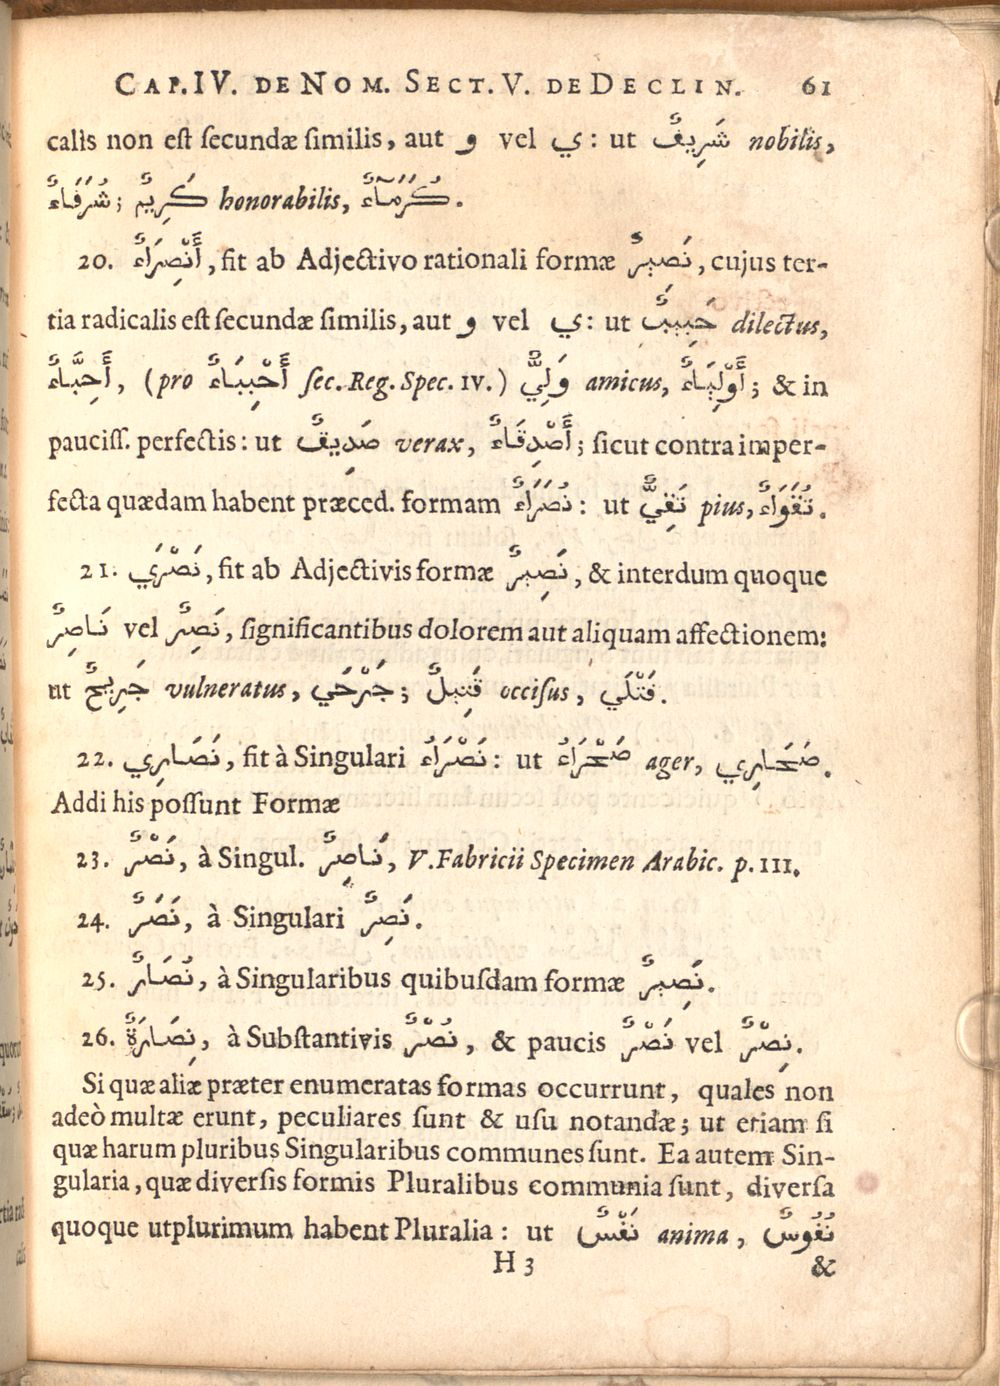 CAP. IV. DE NOM. SECT. V. DE DECLIN. 61
calis non est ſecundæ ſimilis, aut و vel ي: ut شَرِيفٌ nobilis,
شُرَفَاءٌ; كَرِيمٌ honorabilis, كُرَمَآءٌ.
20. أَنْصِرَاءٌ, fit ab Adjectivo rationali formæ نَصِيرٌ, cujus ter-
tia radicalis eſt ſecundæ ſimilis, aut و vel ي: ut حَبِيبٌ dilectus,
أَحِبَّاءٌ, (pro أَحْبِبَاءٌ ſec. Reg. Spec. IV.) وَلِيٌّ amicus, أَوْلِيَاءٌ; & in
pauciſſ. perfectis: ut صَدِيقٌ verax, أَصْدِقَاءٌ; ſicut contra imper-
fecta quædam habent præced. formam نُصَرَاءٌ: ut تَقِيٌّ pius, تُقَوَاءٌ.
21. نَصْرَي, fit ab Adjectivis formæ نَصِيرٌ, & interdum quoque
نَاصِرٌ vel نَصِرٌ, ſignificantibus dolorem aut aliquam affectionem:
ut جَرِيحٌ vulneratus, جَرْحَي; قَتِيلٌ occiſus, قَتْلَي.
22. نَصَارِي, fit à Singulari نَصْرَاءُ: ut صَحْرَاءُ ager, صَحَارِي.
Addi his poſſunt Formæ
23. نَصْرٌ, à Singul. نَاصِرٌ, V. Fabricii Specimen Arabic. p. 111.
24. نَصَرٌ, à Singulari نَصِرٌ.
25. نُصَارٌ, à Singularibus quibuſdam formæ نَصِيرٌ.
26. نِصَارَةٌ, à Subſtantivis نُصْرٌ, & paucis نَصْرٌ vel نِصْرٌ.
Si quæ aliæ præter enumeratas formas occurrunt, quales non
adeò multæ erunt, peculiares ſunt & uſu notandæ; ut etiam ſi
quæ harum pluribus Singularibus communes ſunt. Ea autem Sin-
gularia, quæ diverſis formis Pluralibus communia ſunt, diverſa
quoque utplurimum habent Pluralia: ut نَفْسٌ anima, نُفُوسٌ
H 3 &